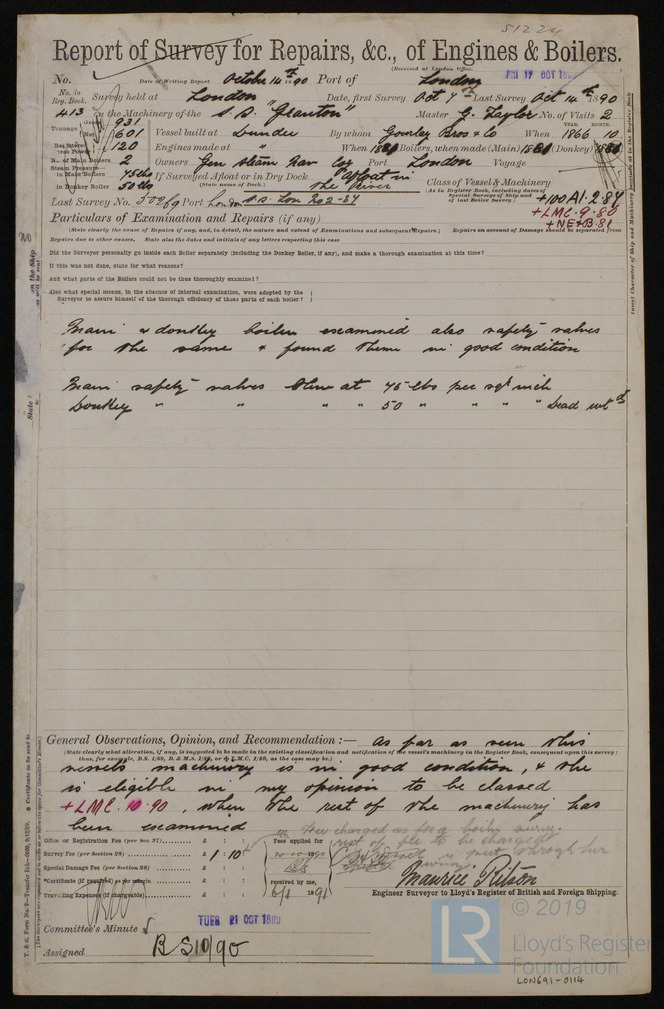 51224
Report of Survey for Repairs, &c., of Engines & Boilers.
(Received at London Office.
No. Date of Writing Report October 14th 1890 Port of London FRI 17 OCT
No. in Reg. Book. Survey held at London Date, first Survey Oct 7th Last Survey Oct 14th 1890
413 on the Machinery of the S.S. "Glanton" Master G. Taylor No. of Visits 2
Tonnage 931 YEAR. MONTH.
Net 601 Vessel built at Dundee By whom Gourlay Bros & Co When 1866 10
120 Engines made at " When 1881 Boilers, when made (Main) 1881 (Donkey) 1881
No. of Main Boilers 2 Owners Gen Steam Nav Coy Port London Voyage
Steam Pressure in Main Boilers 45 lbs If Surveyed Afloat or in Dry Dock Afloat in
in Donkey Boiler 50 lbs (State name of Dock.) the river Class of Vessel & Machinery
(As in Register Book, including dates of Special Surveys of Ship and of last Boiler Survey.)
+100A1.2.87
+LMC.9.86
+NE+B.81
Last Survey No. 50269 Port London S.S. Lon No2-87
Particulars of Examination and Repairs (if any)
(State clearly the cause of Repairs if any, and, in detail, the nature and extent of Examinations and subsequent Repairs.) Repairs on account of Damage should be separated from
Repairs due to other causes, State also the dates and initials of any letters respecting this case
Did the Surveyor personally go inside each Boiler separately (including the Donkey Boiler, if any), and make a thorough examination at this time?
If this was not done, state for what reasons?
And what parts of the Boilers could not be thus thoroughly examined?
Also what special means, in the absence of internal examination, were adopted by the
Surveyor to assure himself of the thorough efficiency of those parts of each boiler?
Main & donkey boilers examined also safety valves
for the same & found them in good condition
Main safety valves blew at 45 lbs per sqr inch
Donkey " " " " 50 " " " " Dead wtds
General Observations, Opinion, and Recommendation:— As far as seen this
(State clearly what alteration, if any, is suggested to be made in the existing classification and notification of the vessel's machinery in the Register Book, consequent upon this survey:
thus, for example, B.S. 1/89, B. & M.S. 1/89, or L.M.C. 1/89, as the case may be.)
vessels machinery is in good condition, & she
is eligible in my opinion to be classed
+LMC.10.90, when the rest of the machinery has
been examined
Fee charged as for a boiler survey.
rest of fee to be charged
Office or Registration Fee (per Sec. 27) £ : : Fees applied for
Survey Fee (per Section 28) £ 1 : 10 :
Special Damage Fee (per Section 28) £ : :
Certificate (if required) as per margin £ : : received by me,
Travelling Expenses (if chargeable) £ : : 6/1 1891
Maurice Ritson
Engineer Surveyor to Lloyd's Register of British and Foreign Shipping.
Committee's Minute TUES 21 OCT 1890
Assigned BS10/90
© 2019
LR
Lloyd's Register
Foundation
LON691-0114